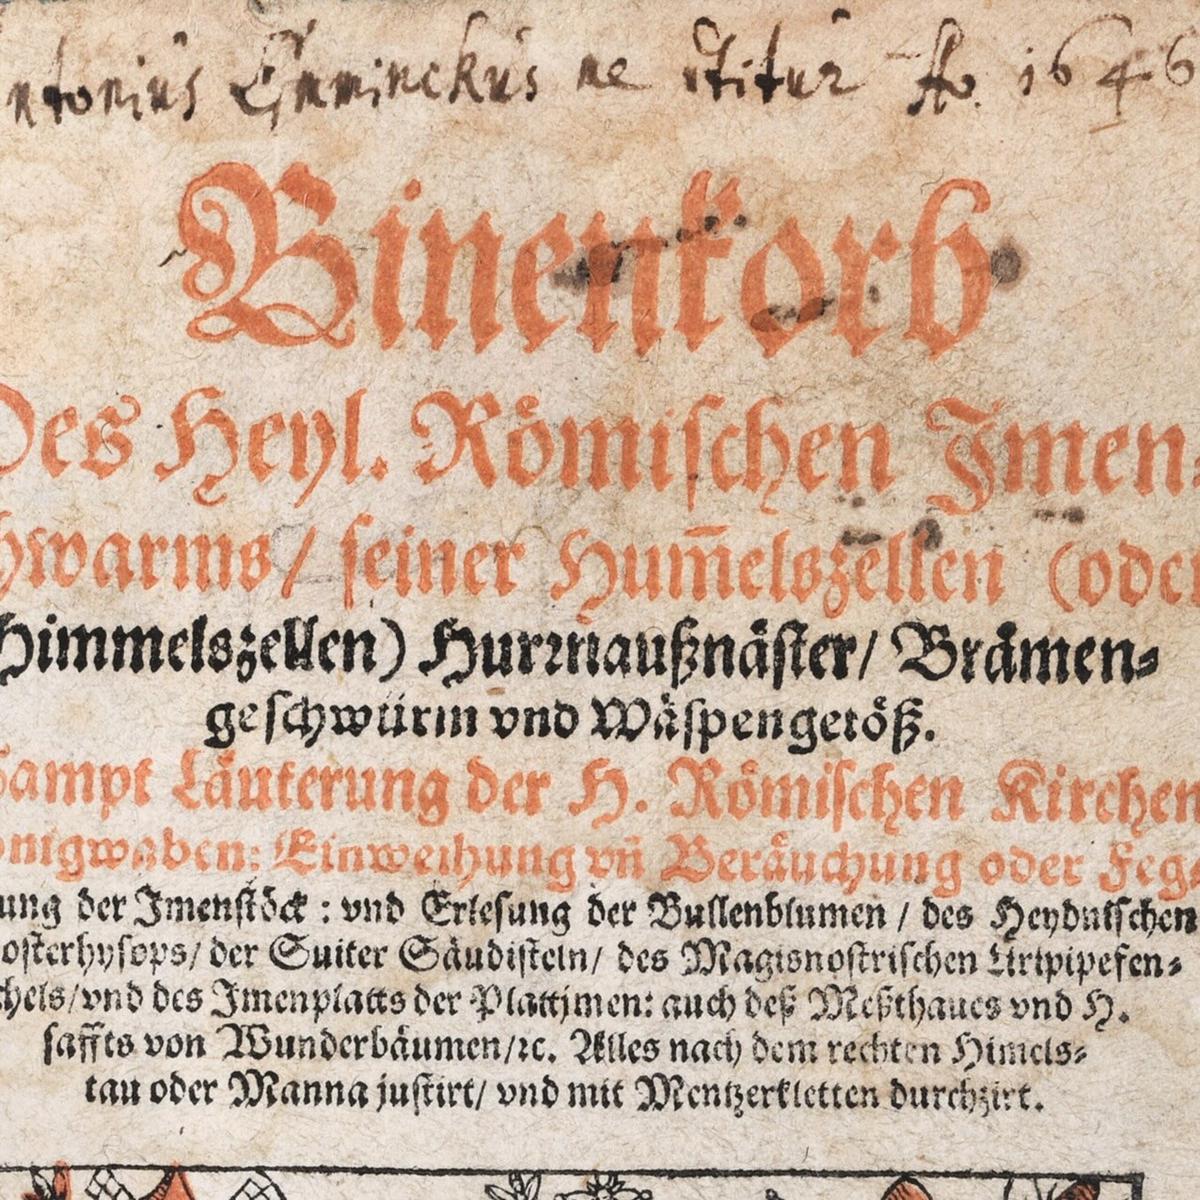 ntonius ne Ao. 1646
Binenkorb
Des Heyl. Römischen Jmen-
hwarms / seiner Hum̃elszellen (oder
Himmelszellen) Hurrnaußnäster / Brämen-
geschwürm vnd Wäspengetöß.
Sampt Läuterung der H. Römischen Kirchen
onigwaben: Einweihung vñ Beräuchung oder Fege
ung der Jmenstöck : vnd Erlesung der Bullenblumen / des Heydnischen
osterhysops / der Suiter Säudisteln / des Magisnostrischen Liripipefen-
chels / vnd des Jmenplatts der Plattimen: auch deß Meßthaues vnd H.
saffts von Wunderbäumen / ꝛc. Alles nach dem rechten Himels-
tau oder Manna justirt / vnd mit Mentzerkletten durchzirt.